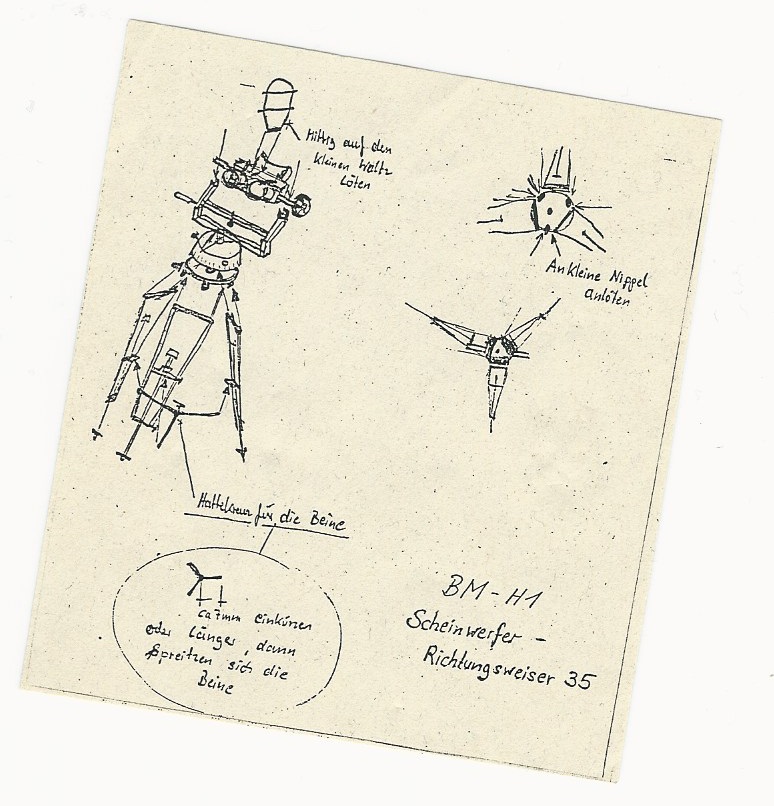 Mittig auf den
kleinen Wulst
Löten
An kleine Nippel
anlöten
Haltekreuz für die Beine
ca 7mm einkürzen
oder länger, dann
Spreitzen sich die
Beine
BM-H1
Scheinwerfer -
Richtungsweiser 35